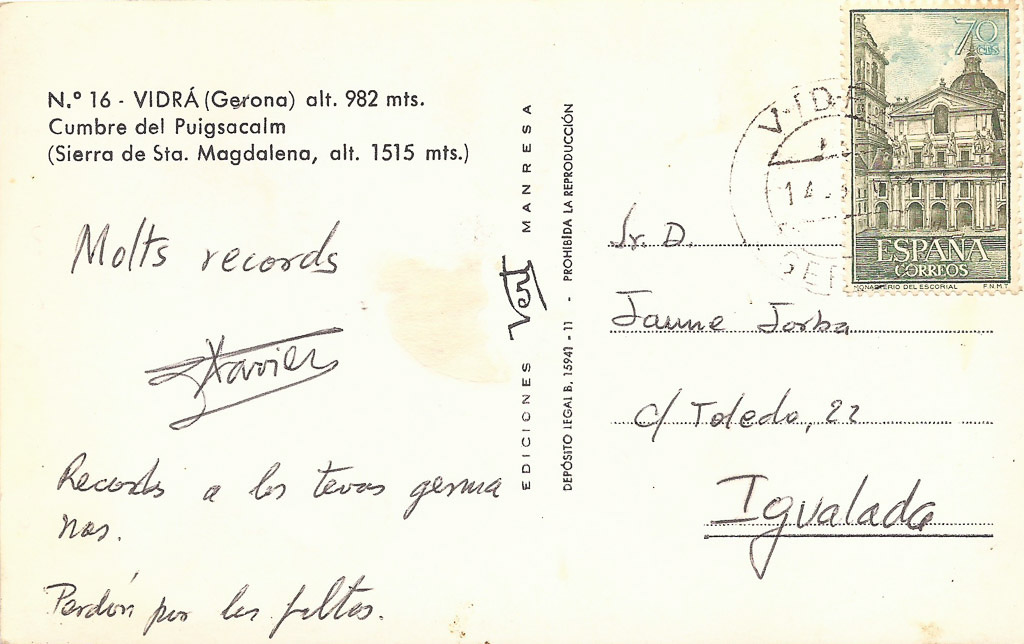 N.º 16 - VIDRÁ (Gerona) alt. 982 mts.
Cumbre del Puigsacalm
(Sierra de Sta. Magdalena, alt. 1515 mts.)
Molts records
Xavier
Records a les tevas germa
nas.
Perdón por les faltes.
EDICIONES Vert MANRESA
DEPÓSITO LEGAL B. 15941 - 11 - PROHIBIDA LA REPRODUCCIÓN
70 CTS
ESPAÑA
CORREOS
MONASTERIO DEL ESCORIAL F.N.M.T
Sr. D.
Jaume Jorba
c/ Toledo, 22
Igualada